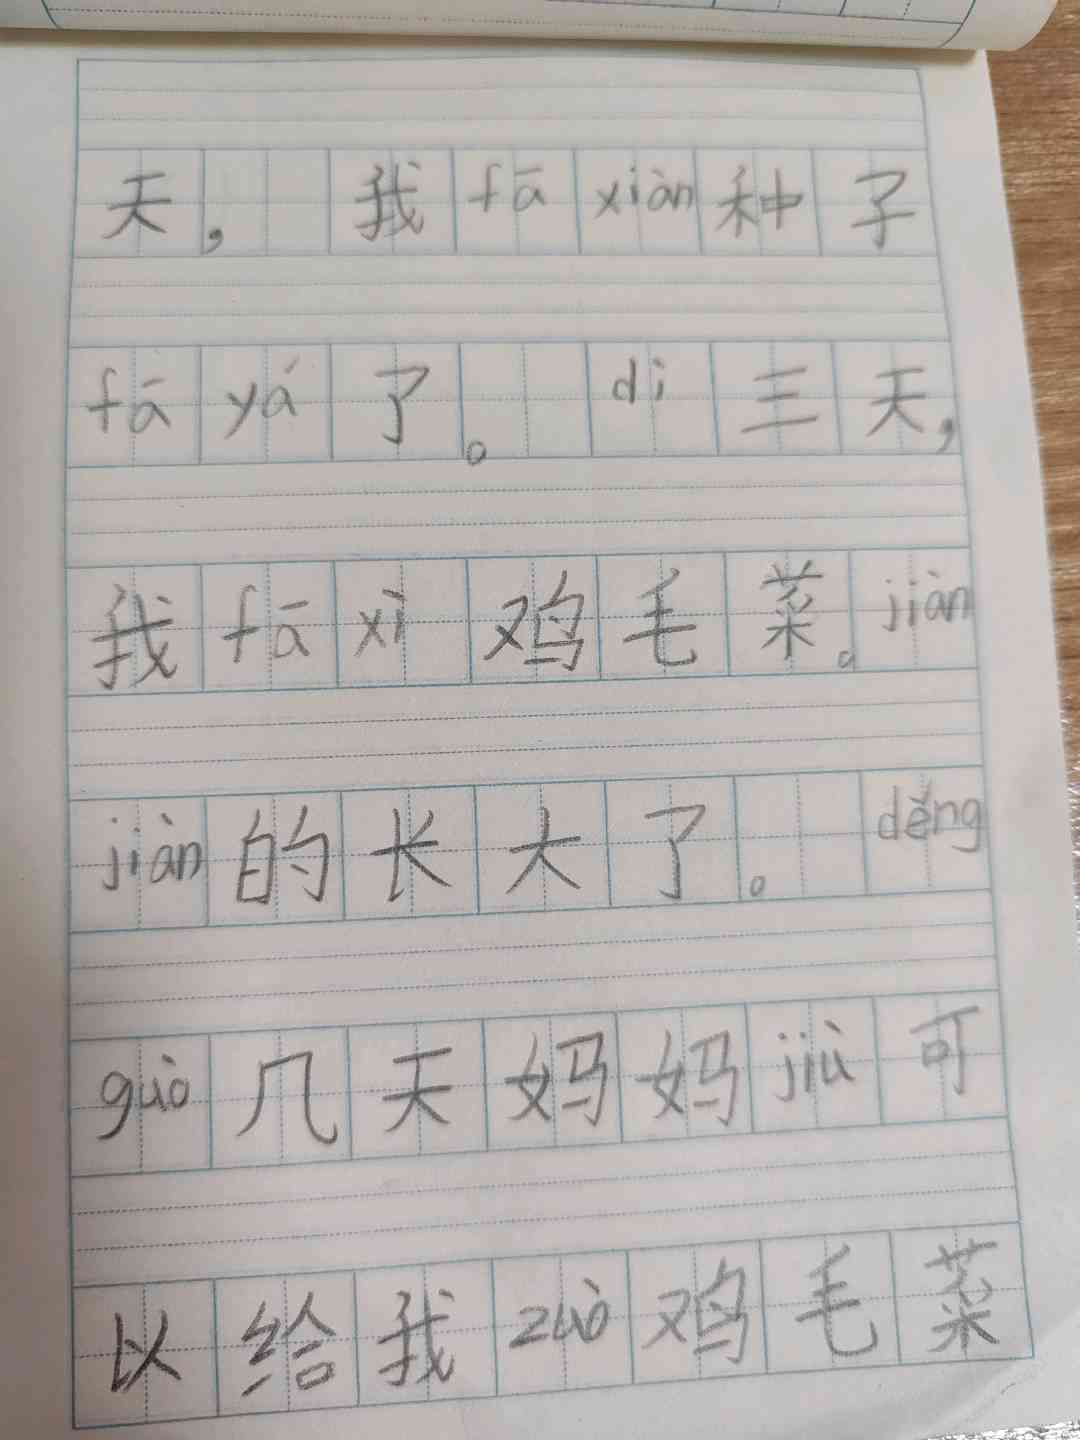 天，我fā xiàn种子
fā yá了。di三天，
我fā xì鸡毛菜。jiàn
jiàn的长大了。děng
guò几天妈妈jiù可
以给我zuò鸡毛菜